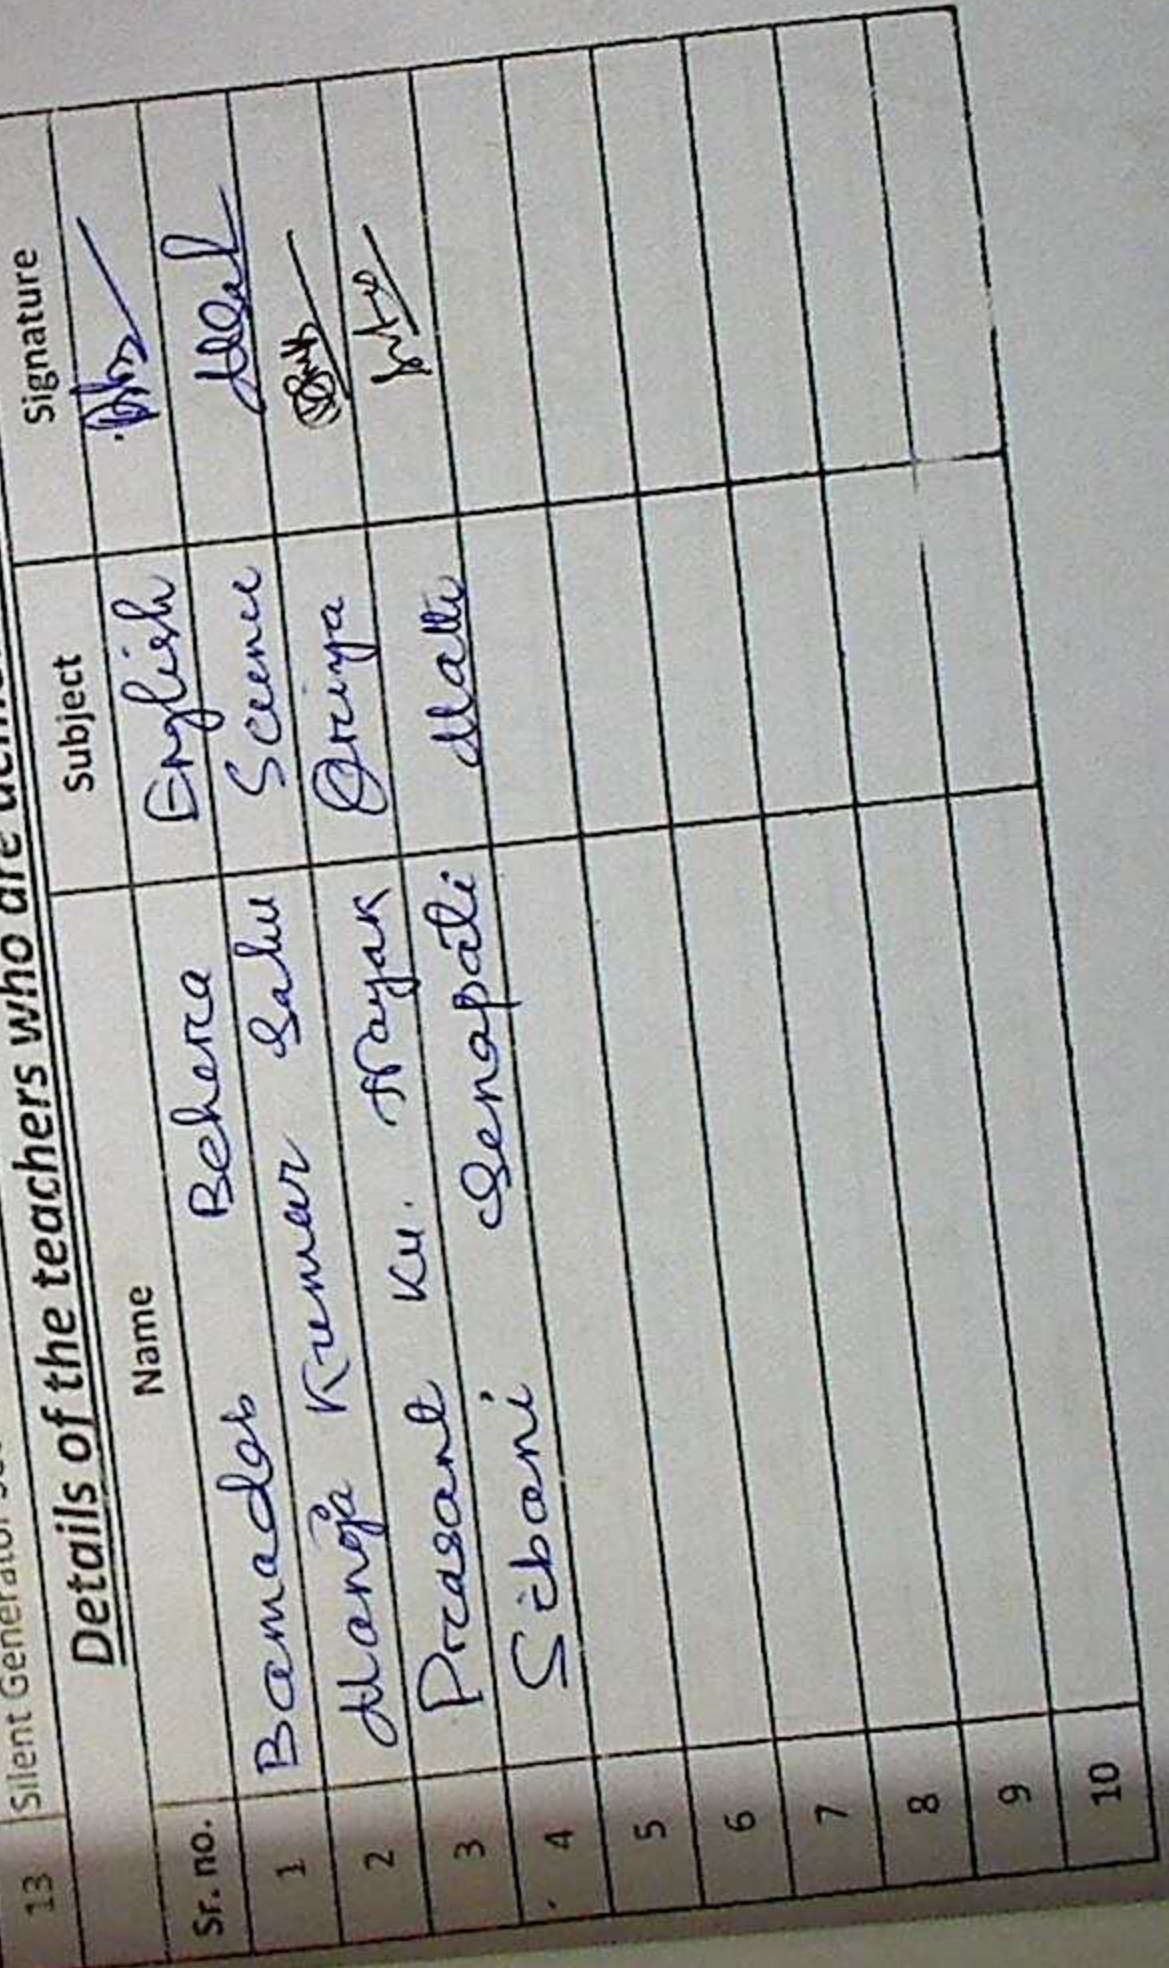 13 Silent Generator
Details of the teachers who are
Sr. no. Name Subject Signature
1 Bamadeb Behera English
2 Manoja Kumar Sahu Science
3 Prasant Ku. Nayak Oriya
4 Sibani Senapati Math
5
6
7
8
9
10